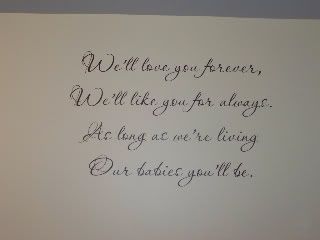 We'll love you forever,
We'll like you for always.
As long as we're living
Our babies you'll be.